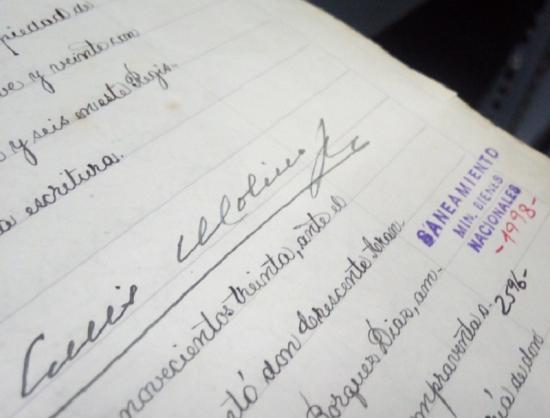 piedad de
ve y veinte con
y seis en este Regis-
a escritura.
Luis Molina
novecientos treinta, ante el
tó don Crescente Aran
Borques Díaz, am-
mpraventa s.
á de don
SANEAMIENTO
MIN. BIENES
NACIONALES
-1998-
2596-